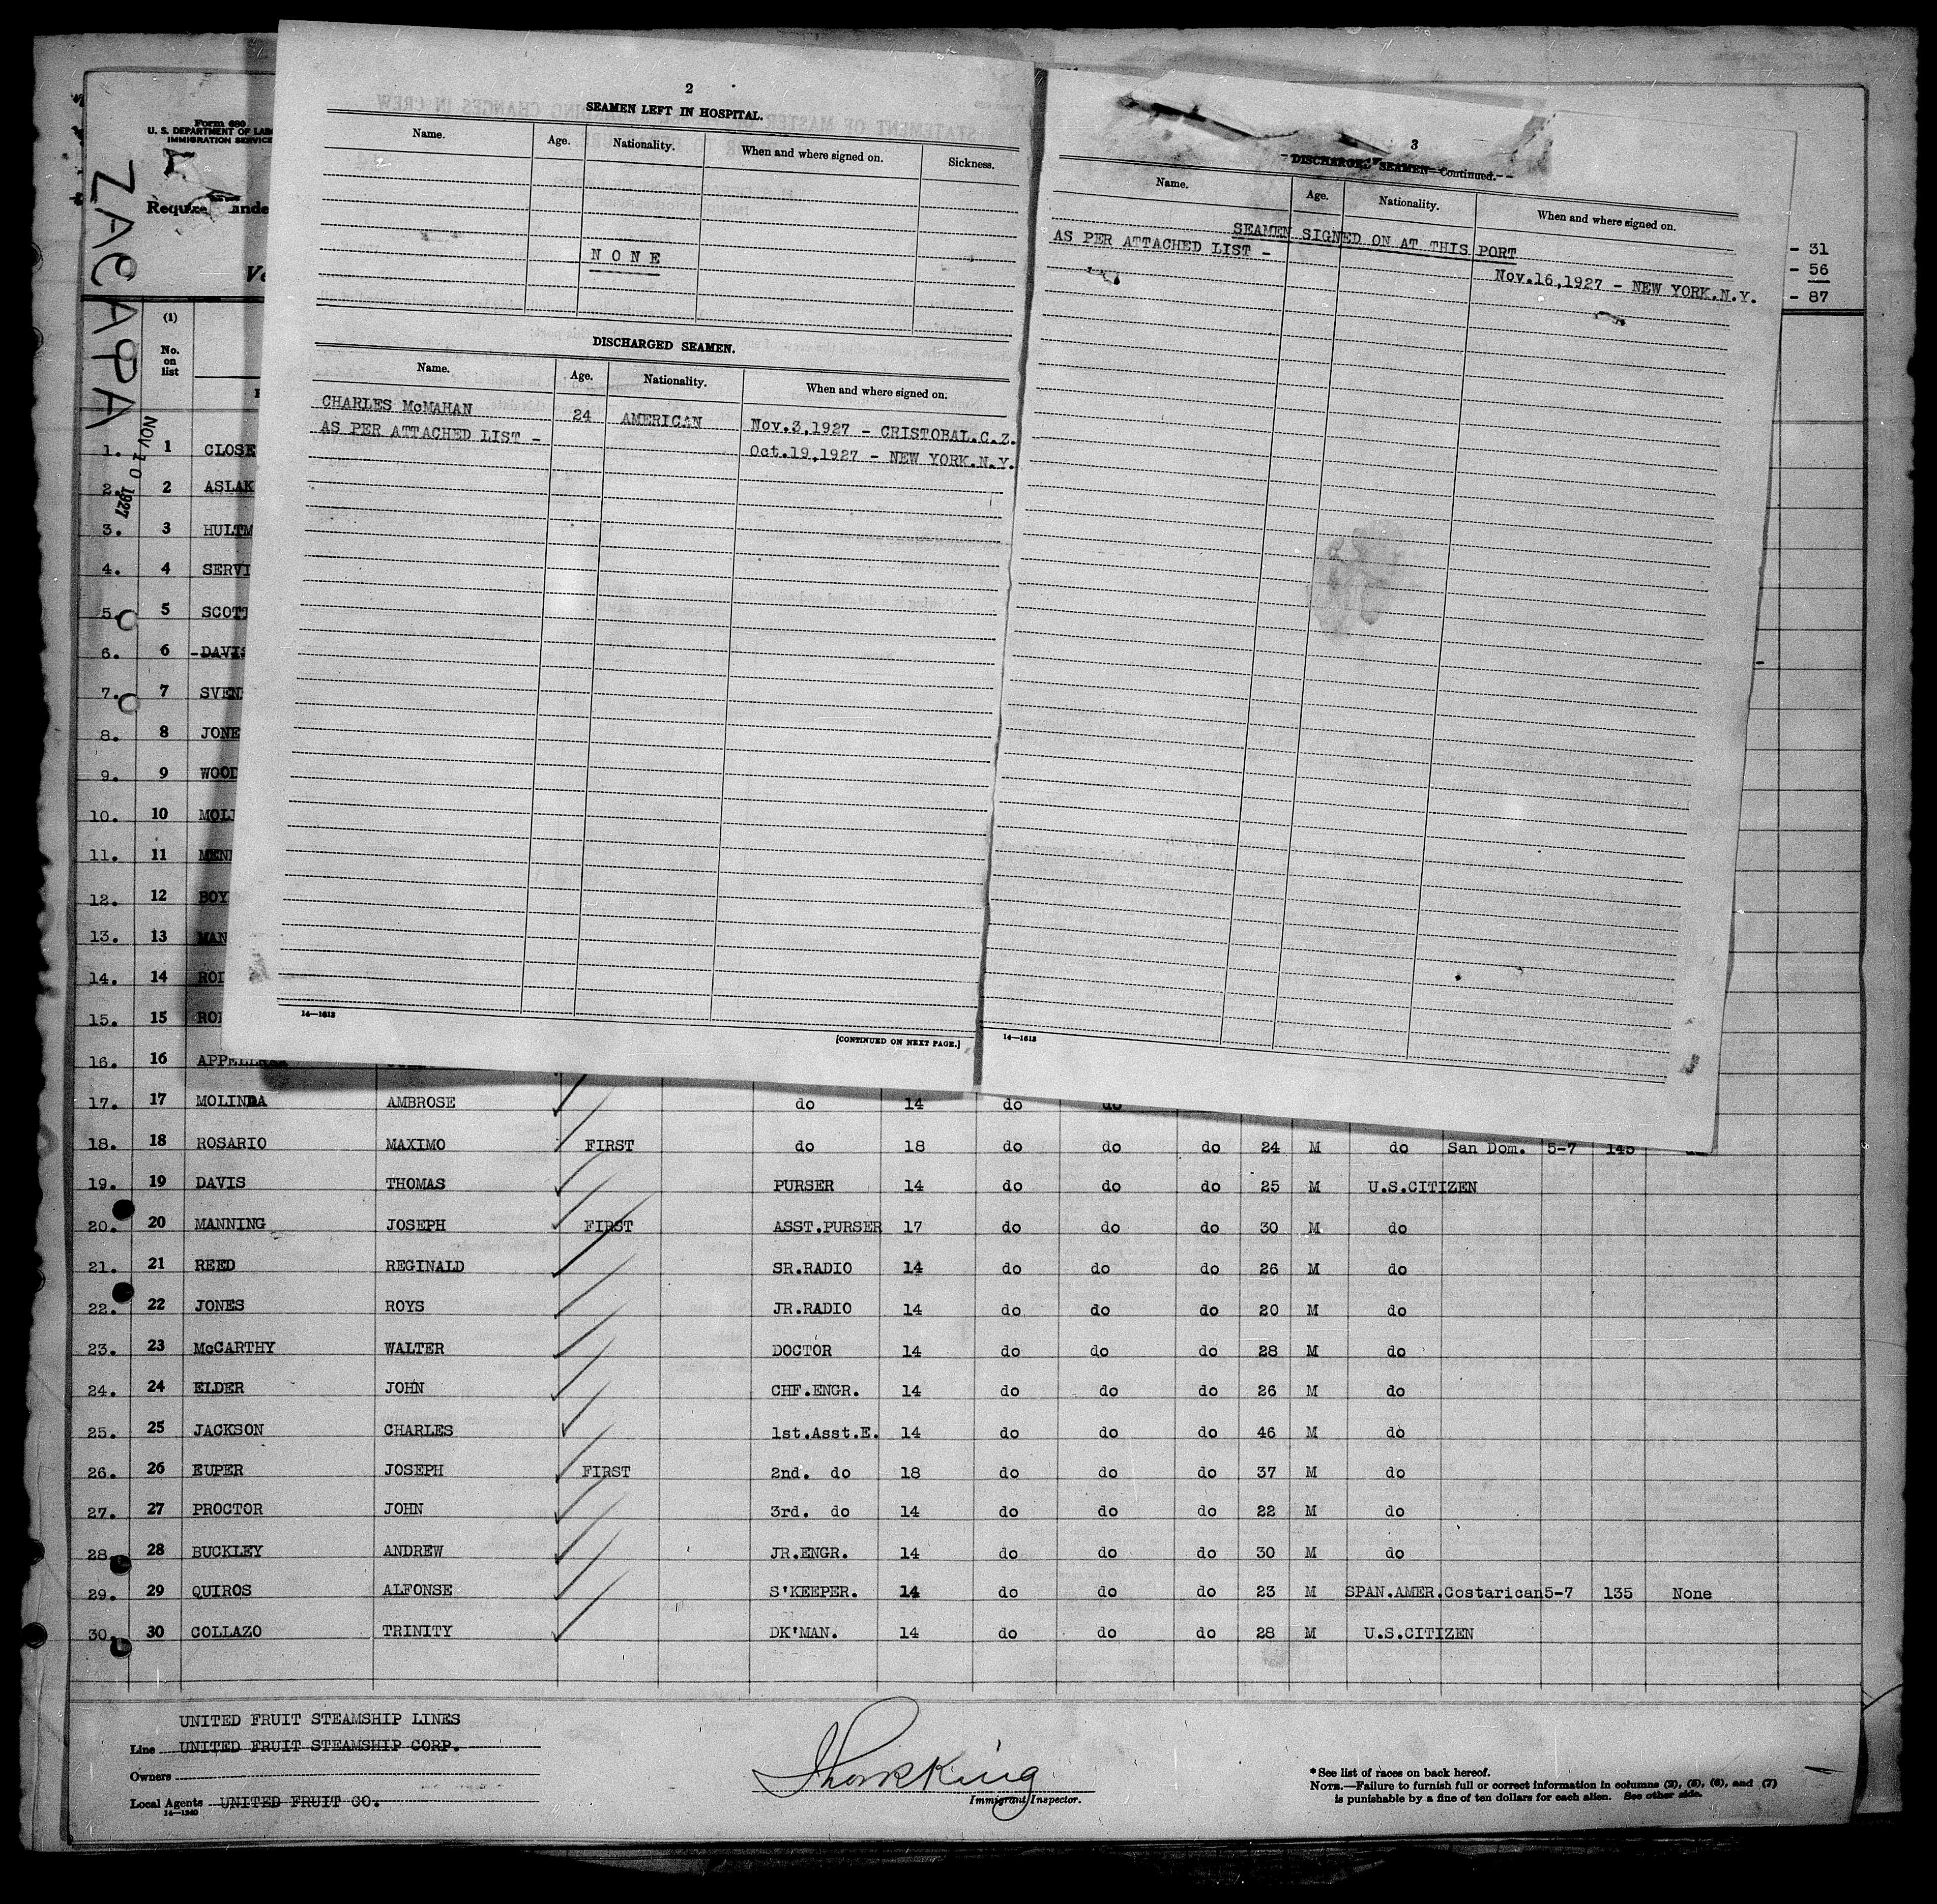 2
SEAMEN LEFT IN HOSPITAL.
Name. Age. Nationality. When and where signed on. Sickness.
N O N E
DISCHARGED SEAMEN.
Name. Age. Nationality. When and where signed on.
CHARLES McMAHAN 24 AMERICAN Nov.3,1927 - CRISTOBAL.C.Z.
AS PER ATTACHED LIST - Oct.19,1927 - NEW YORK.N.Y.
14—1613
[CONTINUED ON NEXT PAGE.]
3
DISCHARGED SEAMEN—Continued.
Name. Age. Nationality. When and where signed on.
SEAMEN SIGNED ON AT THIS PORT
AS PER ATTACHED LIST - Nov.16,1927 - NEW YORK.N.Y.
14—1613
Form 680
U. S. DEPARTMENT OF
IMMIGRATION SERVICE
ZACAPA
NOV 10 1927
- 31
- 56
- 87
(1)
No. on list
1. 1 CLOSE
2. 2 ASLAK
3. 3 HULTM
4. 4 SERVI
5. 5 SCOTT
6. 6 DAVIS
7. 7 SVEN
8. 8 JONE
9. 9 WOOD
10. 10 MOLI
11. 11
12. 12 BOY
13. 13 MAN
14. 14
15. 15
16. 16
17. 17 MOLINDA AMBROSE do 14 do do
18. 18 ROSARIO MAXIMO FIRST do 18 do do do 24 M do San Dom. 5-7 145
19. 19 DAVIS THOMAS PURSER 14 do do do 25 M U.S.CITIZEN
20. 20 MANNING JOSEPH FIRST ASST.PURSER 17 do do do 30 M do
21. 21 REED REGINALD SR.RADIO 14 do do do 26 M do
22. 22 JONES ROYS JR.RADIO 14 do do do 20 M do
23. 23 McCARTHY WALTER DOCTOR 14 do do do 28 M do
24. 24 ELDER JOHN CHF.ENGR. 14 do do do 26 M do
25. 25 JACKSON CHARLES 1st.Asst.E. 14 do do do 46 M do
26. 26 EUPER JOSEPH FIRST 2nd. do 18 do do do 37 M do
27. 27 PROCTOR JOHN 3rd. do 14 do do do 22 M do
28. 28 BUCKLEY ANDREW JR.ENGR. 14 do do do 30 M do
29. 29 QUIROS ALFONSE S'KEEPER. 14 do do do 23 M SPAN.AMER.Costarican5-7 135 None
30. 30 COLLAZO TRINITY DK'MAN. 14 do do do 28 M U.S.CITIZEN
UNITED FRUIT STEAMSHIP LINES
Line UNITED FRUIT STEAMSHIP CORP.
Owners
Local Agents UNITED FRUIT CO.
14—1240
Immigrant Inspector.
* See list of races on back hereof.
NOTE.—Failure to furnish full or correct information in columns (2), (5), (6), and (7)
is punishable by a fine of ten dollars for each alien. See other side.